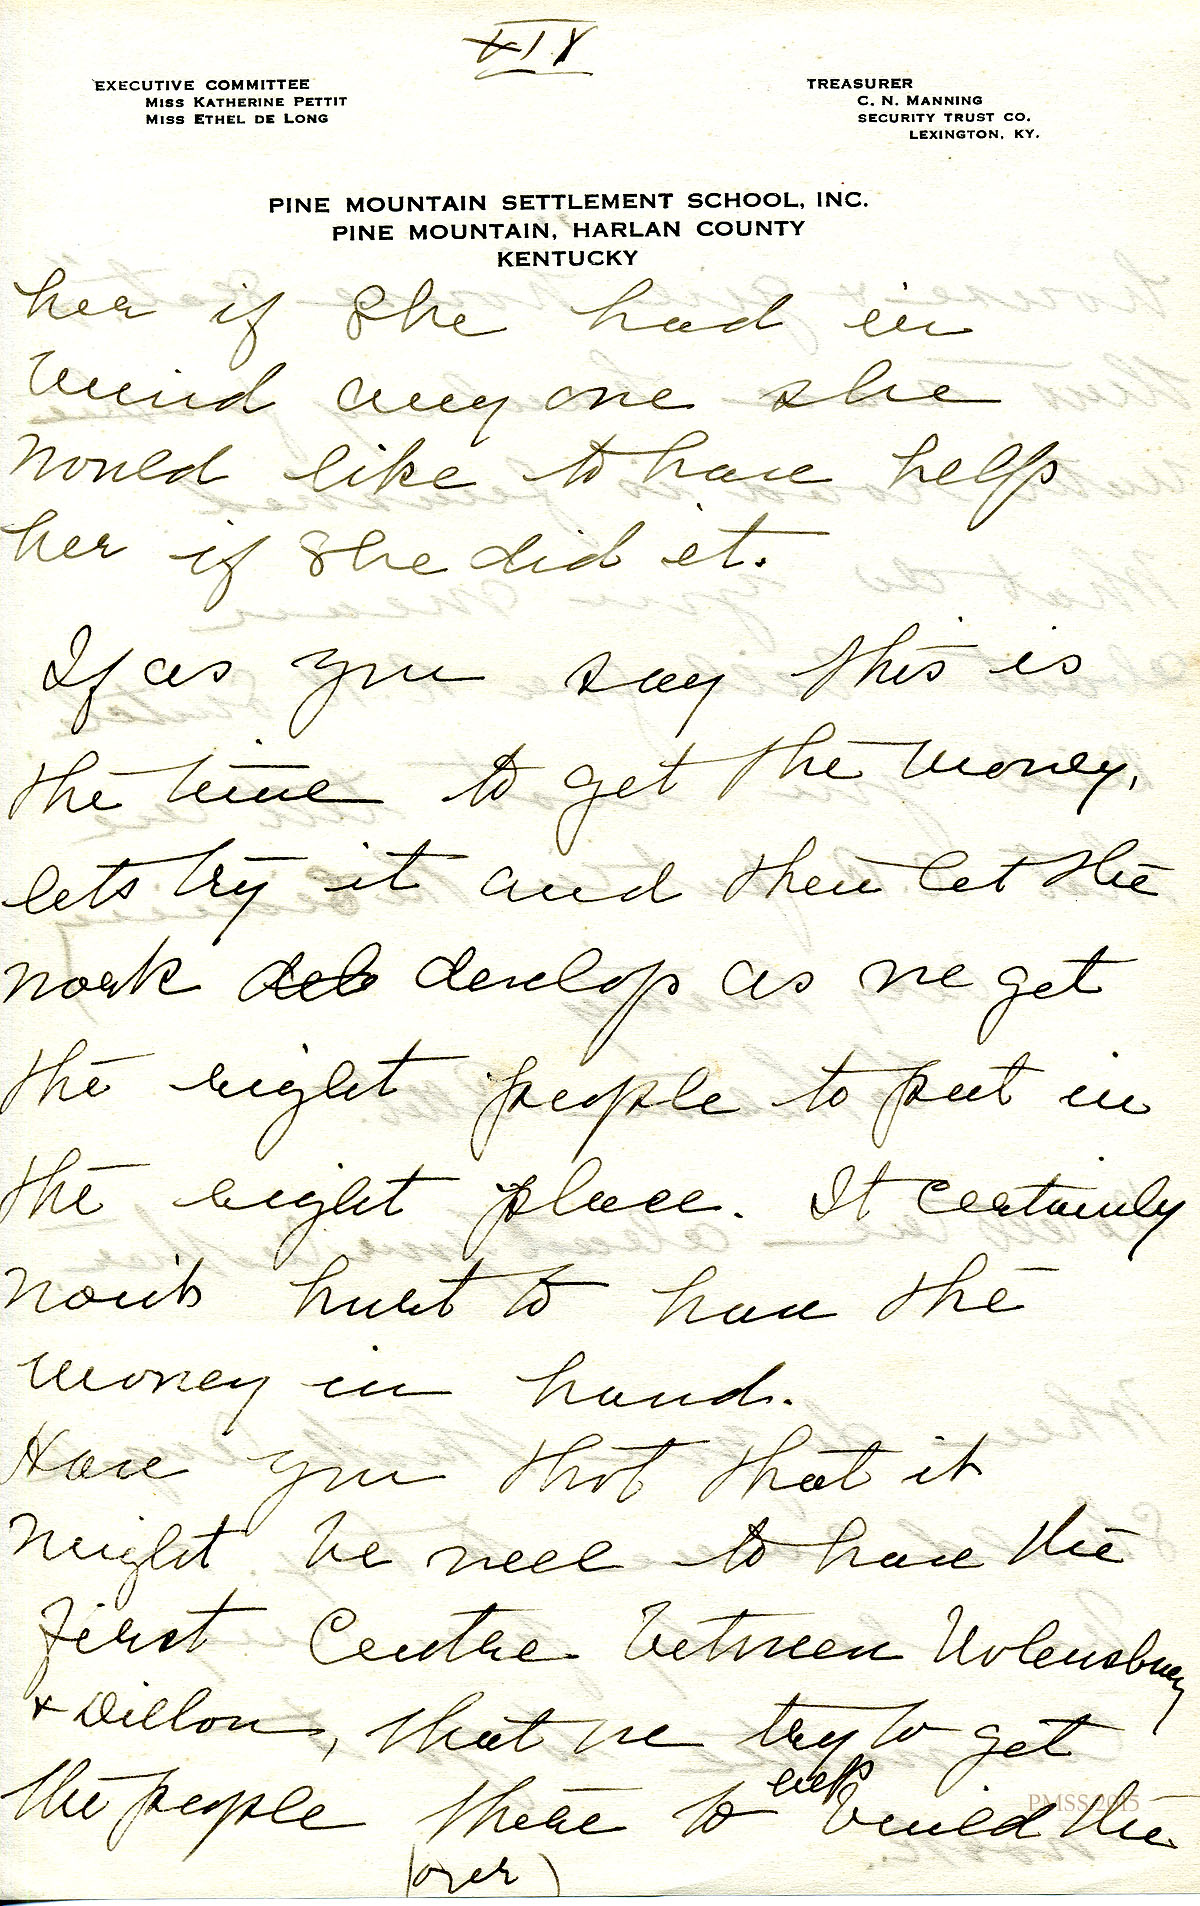 XIV
EXECUTIVE COMMITTEE
MISS KATHERINE PETTIT
MISS ETHEL DE LONG
TREASURER
C. N. MANNING
SECURITY TRUST CO.
LEXINGTON, KY.
PINE MOUNTAIN SETTLEMENT SCHOOL, INC.
PINE MOUNTAIN, HARLAN COUNTY
KENTUCKY
her if she had in
mind any one she
would like to have help
her if she did it.
If as you say this is
the time to get the money,
lets try it and then let the
work deb develop as we get
the right people to put in
the right place. It certainly
won't hurt to have the
money in hand.
Have you thot that it
might be well to have the
first Centre between
& Dillon, that we try to get
the people there to help build the
(over)
PMSS 2015